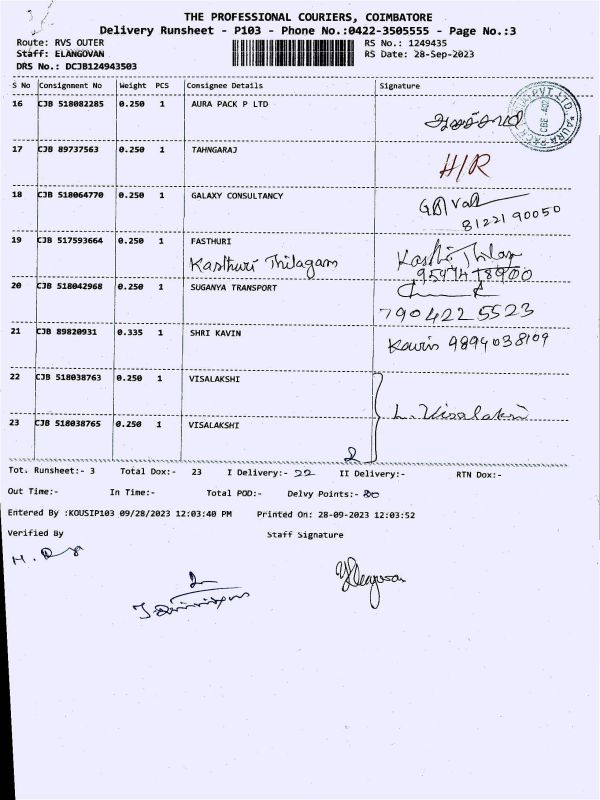 THE PROFESSIONAL COURIERS, COIMBATORE
Delivery Runsheet - P103 - Phone No.:0422-3505555 - Page No.:3
Route: RVS OUTER RS No.: 1249435
Staff: ELANGOVAN RS Date: 28-Sep-2023
DRS No.: DCJB124943503
S No Consignment No Weight PCS Consignee Details Signature
16 CJB 518082285 0.250 1 AURA PACK P LTD
17 CJB 89737563 0.250 1 TAHNGARAJ H/R
18 CJB 518064770 0.250 1 GALAXY CONSULTANCY
8122190050
19 CJB 517593664 0.250 1 FASTHURI
Kasthuri Thilagam
20 CJB 518042968 0.250 1 SUGANYA TRANSPORT
7904225523
21 CJB 89820931 0.335 1 SHRI KAVIN
Kavin 9894038109
22 CJB 518038763 0.250 1 VISALAKSHI
L. Visalakshi
23 CJB 518038765 0.250 1 VISALAKSHI
2
Tot. Runsheet:- 3 Total Dox:- 23 I Delivery:- 22 II Delivery:- RTN Dox:-
Out Time:- In Time:- Total POD:- Delvy Points:- 20
Entered By :KOUSIP103 09/28/2023 12:03:40 PM Printed On: 28-09-2023 12:03:52
Verified By Staff Signature